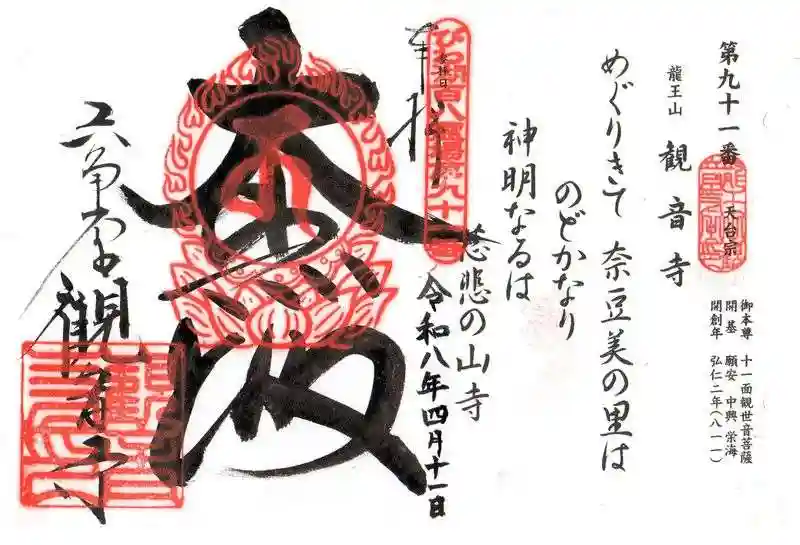 第九十一番
龍王山
観音寺
天台宗
御本尊 十一面観世音菩薩
開基 願安 中興 栄海
開創年 弘仁二年(八一一)
めぐりきて 奈豆美の里は
のどかなり
神明なるは
慈悲の山寺
奉拝
参拝日
令和八年四月十一日
大悲殿
六角堂観音寺